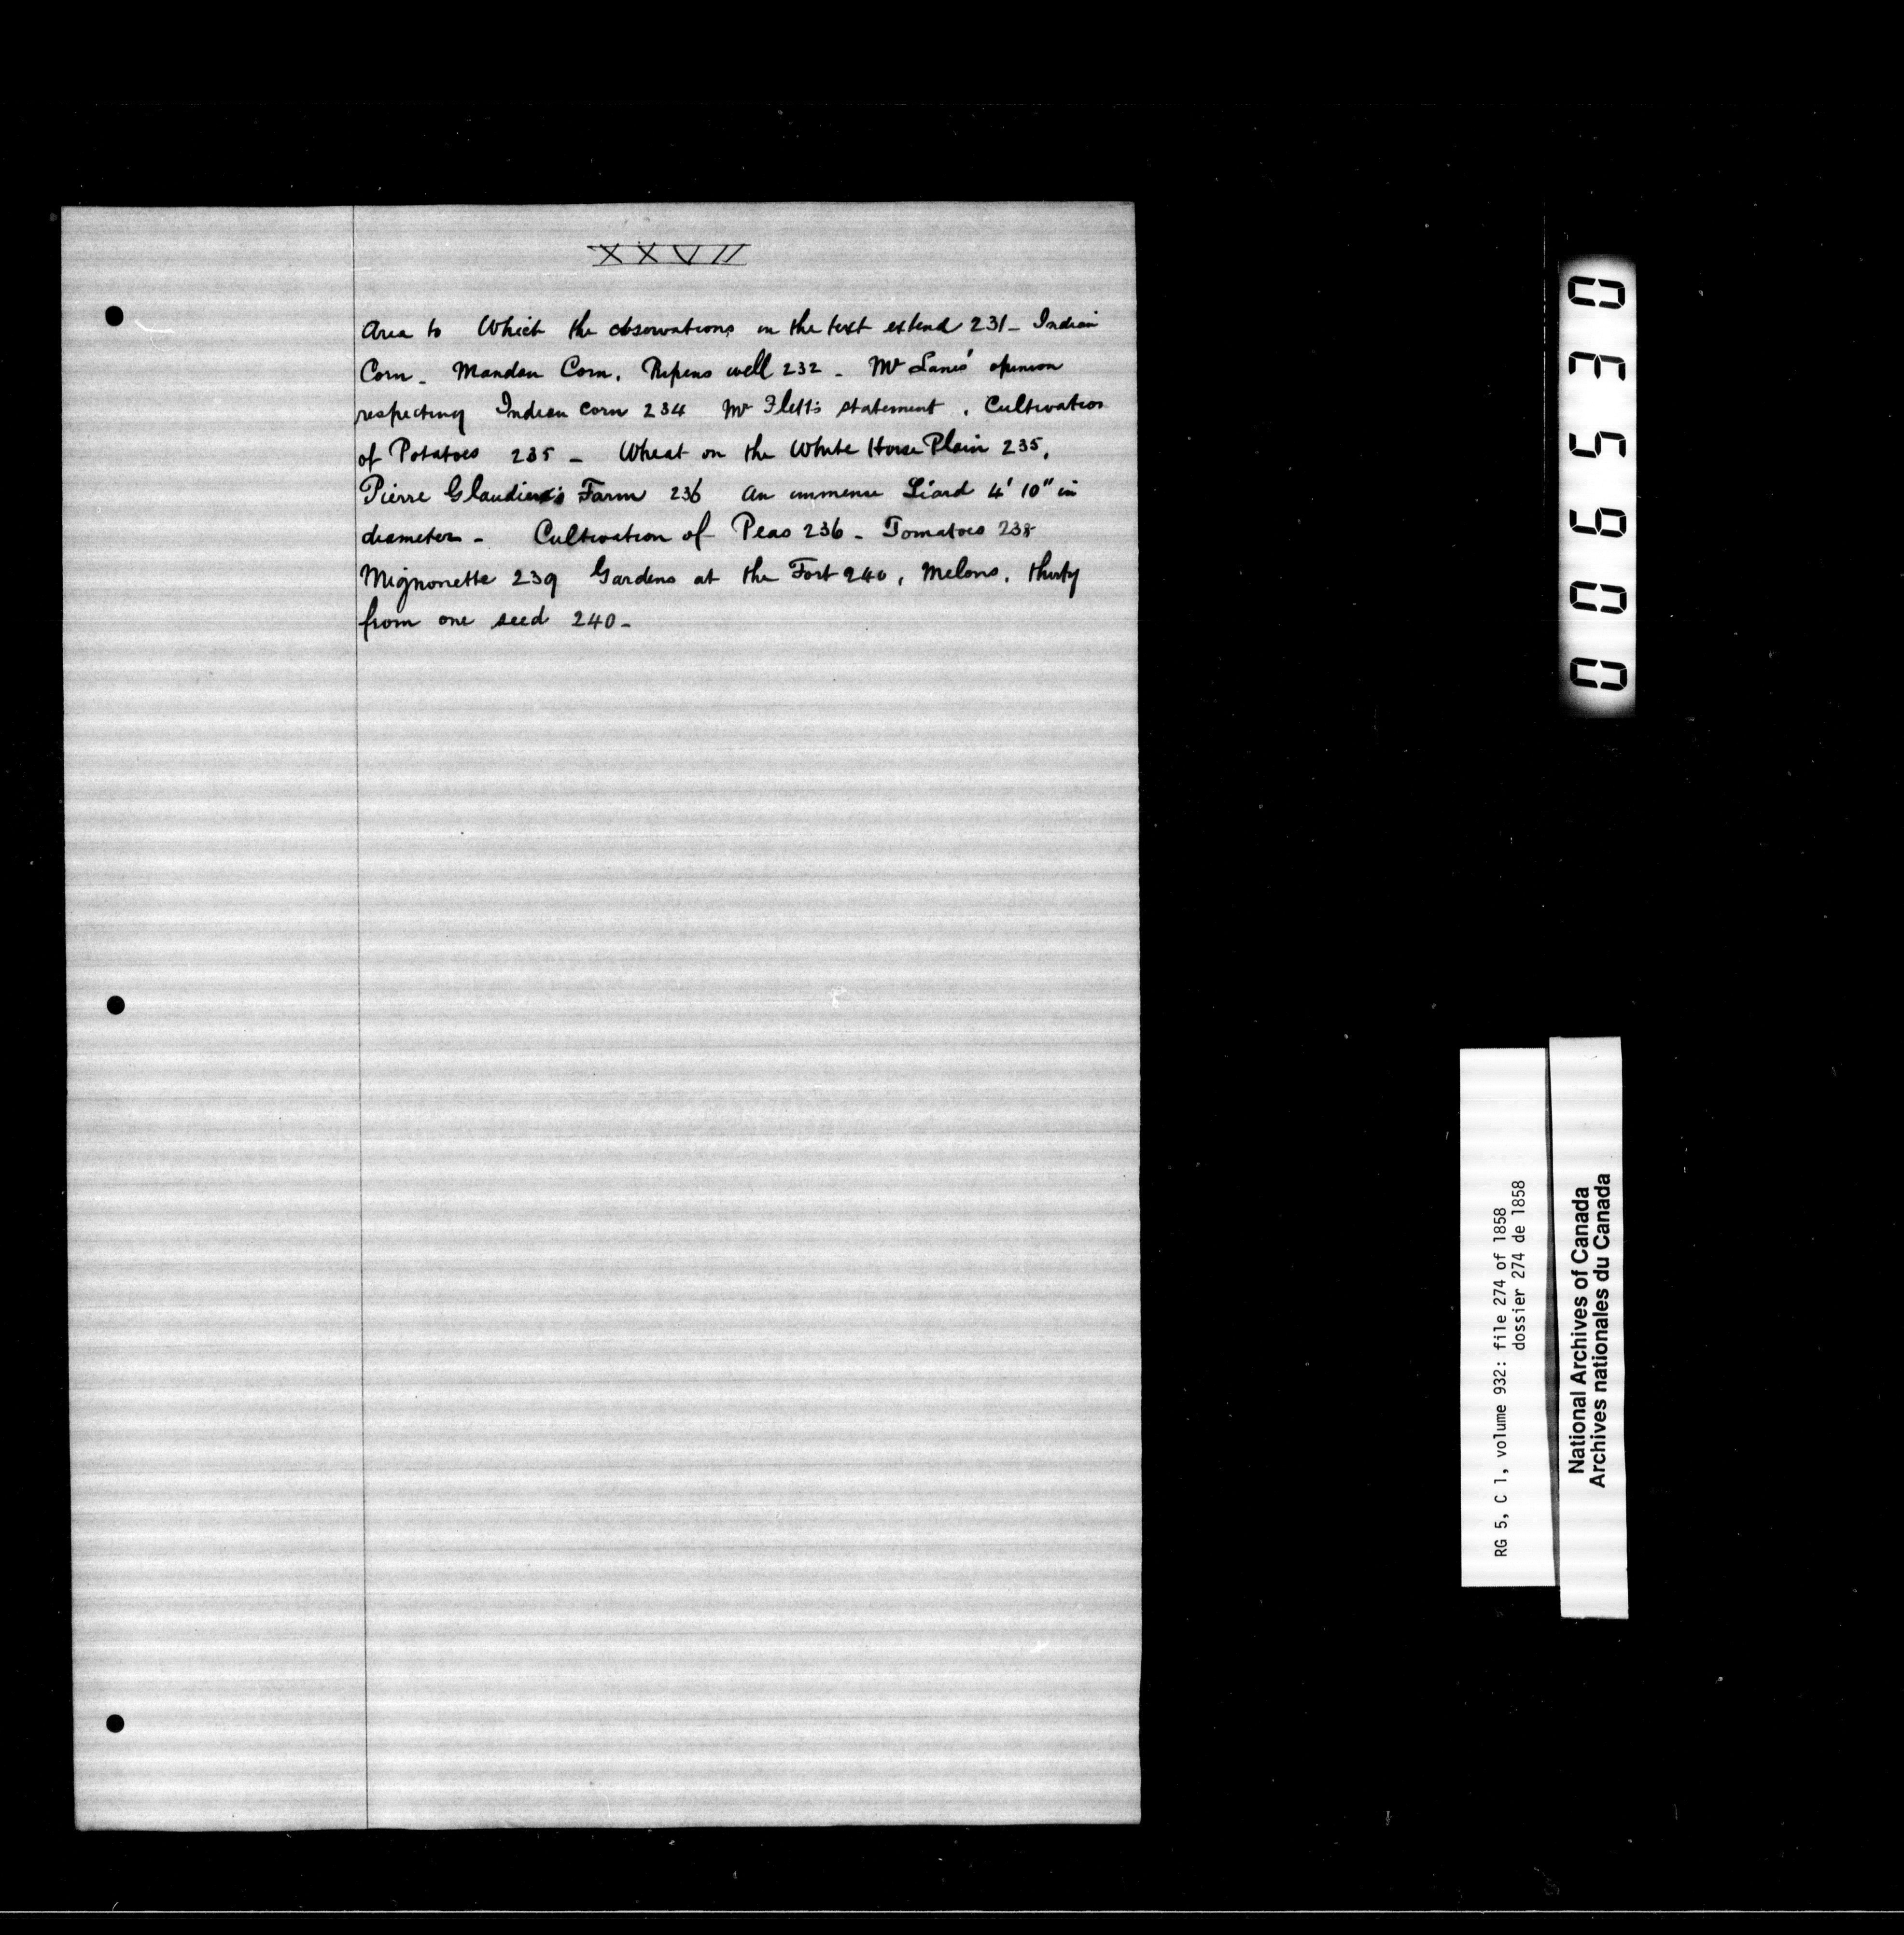 XXVII
Area to Which the observations in the text extend 231 – Indian
Corn – Mandan Corn. Ripens well 232 – Mr Lane's opinion
respecting Indian corn 234 Mr Flett's statement. Cultivation
of Potatoes 235 – Wheat on the White Horse Plain 235.
Pierre Glaudien's Farm 236 An immense Liard 4' 10" in
diameter – Cultivation of Peas 236 – Tomatoes 238
Mignonette 239 Gardens at the Fort 240, Melons, thirty
from one seed 240 –
006530
RG 5, C 1, volume 932: file 274 of 1858
dossier 274 de 1858
National Archives of Canada
Archives nationales du Canada